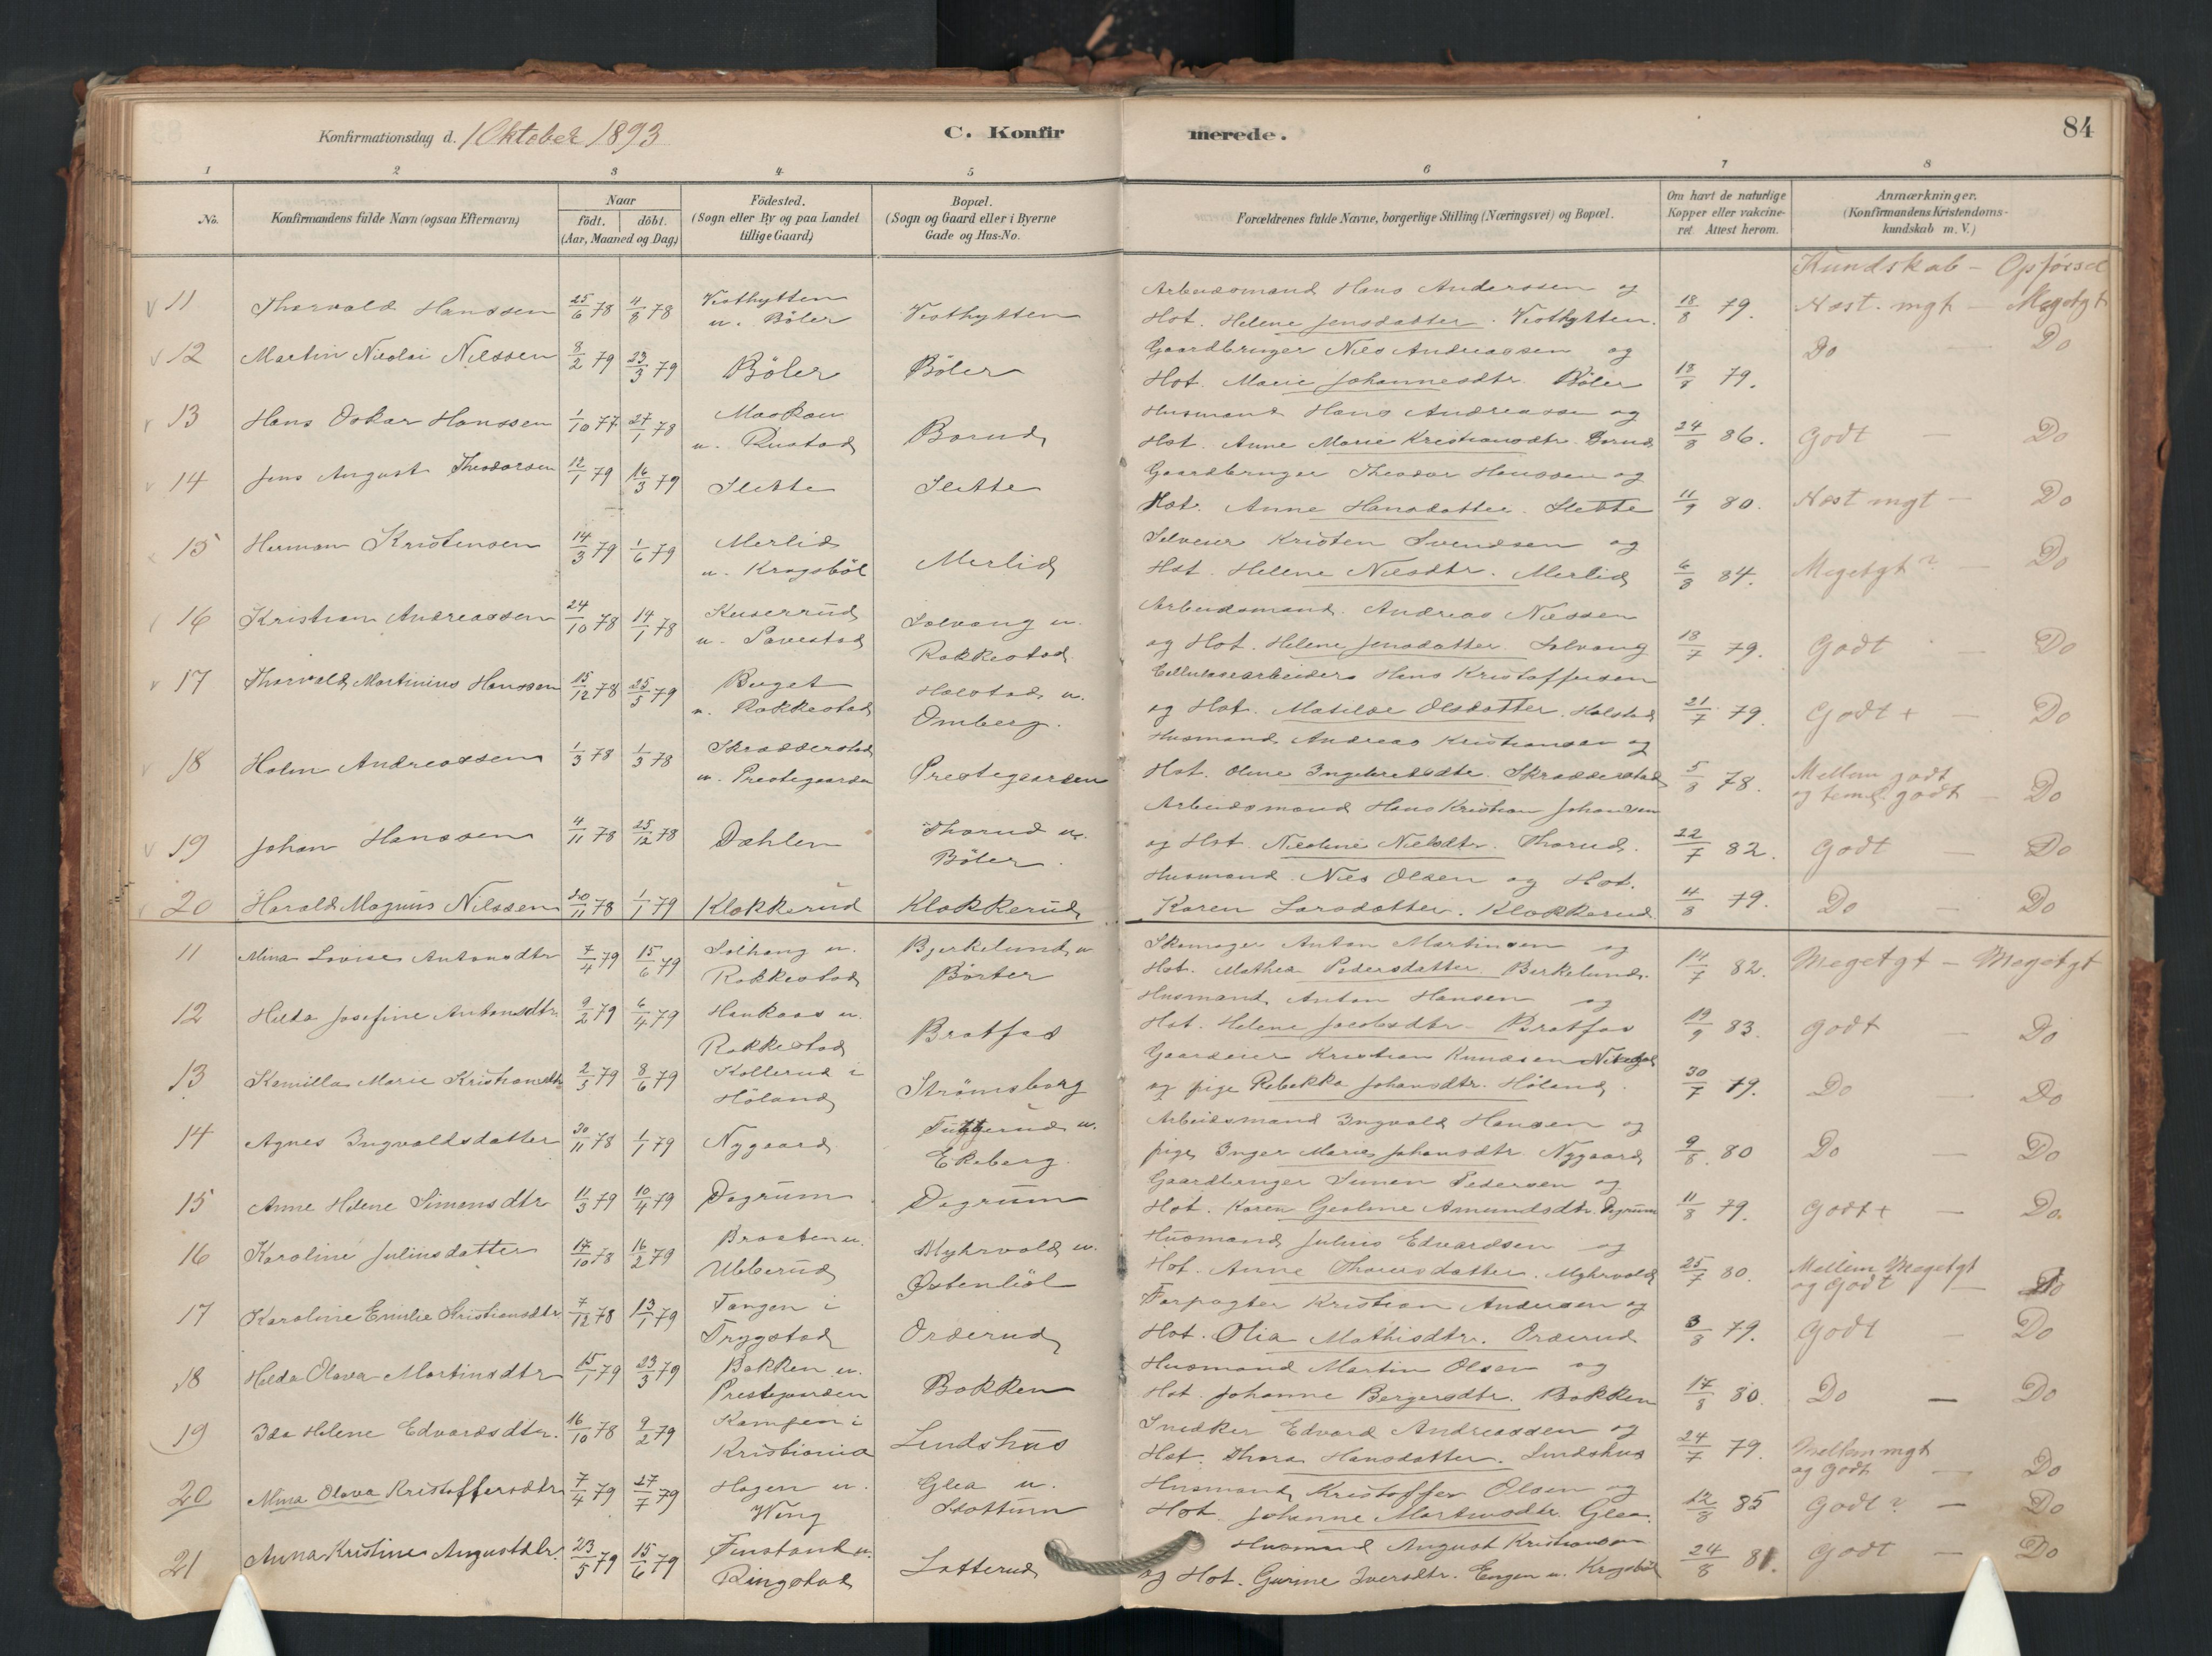 Konfirmationsdag d. 1 Oktober 1893
C. Konfirmerede.
84
1 2 3 4 5 6 7 8
No.
Konfirmandens fulde Navn (ogsaa Efternavn)
Naar
födt. döbt.
(Aar, Maaned og Dag)
Födested.
(Sogn eller By og paa Landet
tillige Gaard)
Bopæl.
(Sogn og Gaard eller i Byerne
Gade og Hus-No.
Forældrenes fulde Navne, borgerlige Stilling (Næringsvei) og Bopæl.
Om havt de naturlige
Kopper eller vakcine-
ret Attest herom.
Anmærkninger.
(Konfirmandens Kristendoms-
kundskab m. V.)
Kundskab - Opførsel
11 Thorvald Hanssen 25/6 78 4/8 78 u. Böler
Arbeidsmand Hans Anderssen og
Hst. Helene Jensdatter. 18/8 79. Næst. mgt - Megetgt
12 Martin Nicolai Nilssen 8/2 79 23/3 79 Böler Böler
Gaardbruger Nils Andreassen og
Hst. Marie Johannesdtr. Böler 79. Do - Do
13 Hans Oskar Hanssen 1/10 77 27/1 78 u. Rustad Borud
Husmand Hans Andreassen og
Hst. Anne Marie Kristiansdtr. Borud 24/8 86. Godt - Do
14 Jens August Theodorsen 12/1 79 16/3 79 Slette Slette
Gaardbruger Theodor Hanssen og
Hst. Anne Hansdatter. Slette 11/9 80. Næst mgt - Do
15 Herman Kristensen 14/3 79 1/6 79 Merlid
u. Krogsböl Merlid
Selveier Kristen Svendsen og
Hst. Helene Nilsdtr. Merlid 6/8 84. Megetgt? - Do
16 Kristian Andreassen 24/10 78 14/1 78 u. Solvang u.
Rakkestad
Arbeidsmand Andreas Nilssen
og Hst. Helene Jensdatter. Solvang 18/7 79. Godt - Do
17 Thorvald Martinius Hanssen 15/12 78 25/5 79 u. Rakkestad Halstad u.
Omberg.
Cellulosearbeider Hans Kristoffersen
og Hst. Matilde Olsdatter. Halstad 21/7 79. Godt + - Do
18 Holm Andreassen 1/3 78 1/3 78 Skrædderstad
u. Prestegaarden Prestegaarden
Husmand Andreas Kristiansen og
Hst. Oline Ingebretsdtr. Skrædderstad 5/8 78. Mellem godt
og teml. godt - Do
19 Johan Hanssen 4/11 78 25/12 78 Dæhlen Thorud u.
Böler.
Arbeidsmand Hans Kristian Johansen
og Hst. Nicoline Nielsdtr. Thorud. 22/7 82. Godt - Do
20 Harald Magnus Nilssen 20/11 78 1/1 79 Klokkerud Klokkerud
Husmand Nils Olsen og Hst.
Karen Larsdatter. Klokkerud 4/8 79. Do - Do
11 Mina Lovise Antonsdtr 7/4 79 15/6 79 Solhaug u.
Rakkestad Bjerkelund u
Börter
Skomager Anton Martinsen og
Hst. Mathea Pedersdatter Berkelund. 14/7 82. Megetgt - Megetgt
12 Hilda Josefine Antonsdtr. 9/2 79 6/4 79 Haukaas u.
Rakkestad Bratfos
Husmand Anton Hansen og
Hst. Helene Jacobsdtr - Bratfos 19/9 83. Godt - Do
13 Kamilla Marie Kristiansdtr 2/5 79 8/6 79 Kollerud i
Höland Strömsborg
Gaardeier Kristian Knudsen
og pige Rebekka Johansdtr. Höland. 30/7 79. Do - Do
14 Agnes Ingvaldsdatter 30/11 78 1/1 79 Nygaard Tuggerud u.
Ekeberg.
Arbeidsmand Ingvald Hansen og
pige Inger Marie Johansdtr Nygaard 9/8 80 Do - Do
15 Anne Helene Simensdtr 11/3 79 10/4 79 Dögrum Dögrum
Gaardbruger Simen Pedersen og
Hst. Karen Geoline Amundsdtr. Dögrum 11/8 79. Godt + - Do.
16 Karoline Juliusdatter 17/10 78 16/2 79 Braaten u.
Ubberud Myhrvold u.
Østenböl
Husmand Julius Edvardsen og
Hst. Anne Thorersdatter. Myhrvold 25/7 80. Mellem Megetgt
og Godt - Do
17 Karoline Emilie Kristiansdtr 7/12 78 13/1 79 Tangen i
Trygstad Orderud
Forpagter Kristian Andersen og
Hst. Olia Mathisdtr. Orderud 3/8 79. Godt - Do
18 Hilda Olava Martinsdtr 15/1 79 23/3 79 Bakken u.
Prestegaarden Bakken
Husmand Martin Olsen og
Hst. Johanne Bergersdtr. Bakken 17/8 80. Do - Do
19 Ida Helene Edvardsdtr. 16/10 78 9/2 79 Kampen i
Kristiania Lundshus
Snedker Edvard Andreassen og
Hst. Thora Hansdatter. Lundshus 24/7 79. Mellem mgt
og Godt - Do
20 Mina Olava Kristoffersdtr 7/4 79 27/7 79 Hagen u.
Wing Glea u.
Husmand Kristoffer Olsen og
Hst. Johanne Martinsdtr. Glea. 12/8 85 Godt? - Do
21 Anna Kristine Augustdtr. 23/5 79 15/6 79 u.
Ringstad Lotterud
Husmand August Kristiansen
og Hst. Gurine Iversdtr. Engen u. Krogsböl 24/8 81. Godt - Do